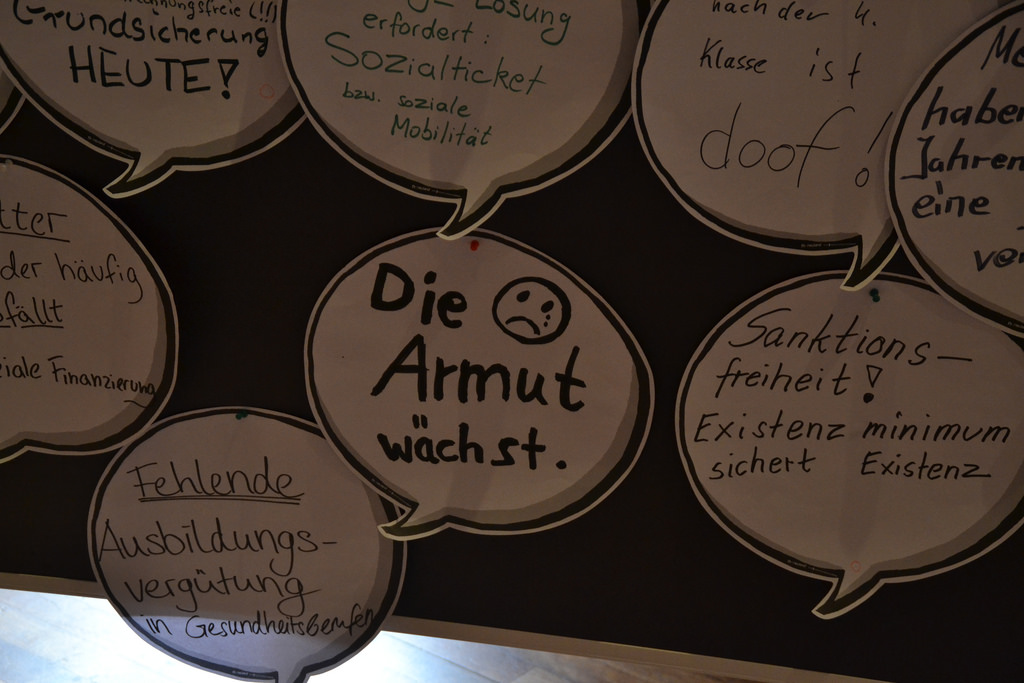 Grundsicherung
HEUTE!
Lösung
erfordert:
Sozialticket
bzw. soziale
Mobilität
nach der 4.
Klasse ist
doof!
haben
Jahren
eine
der häufig
Finanzierung
Die
Armut
wächst.
Sanktions-
freiheit!
Existenzminimum
sichert Existenz
Fehlende
Ausbildungs-
vergütung
in Gesundheitsberufen